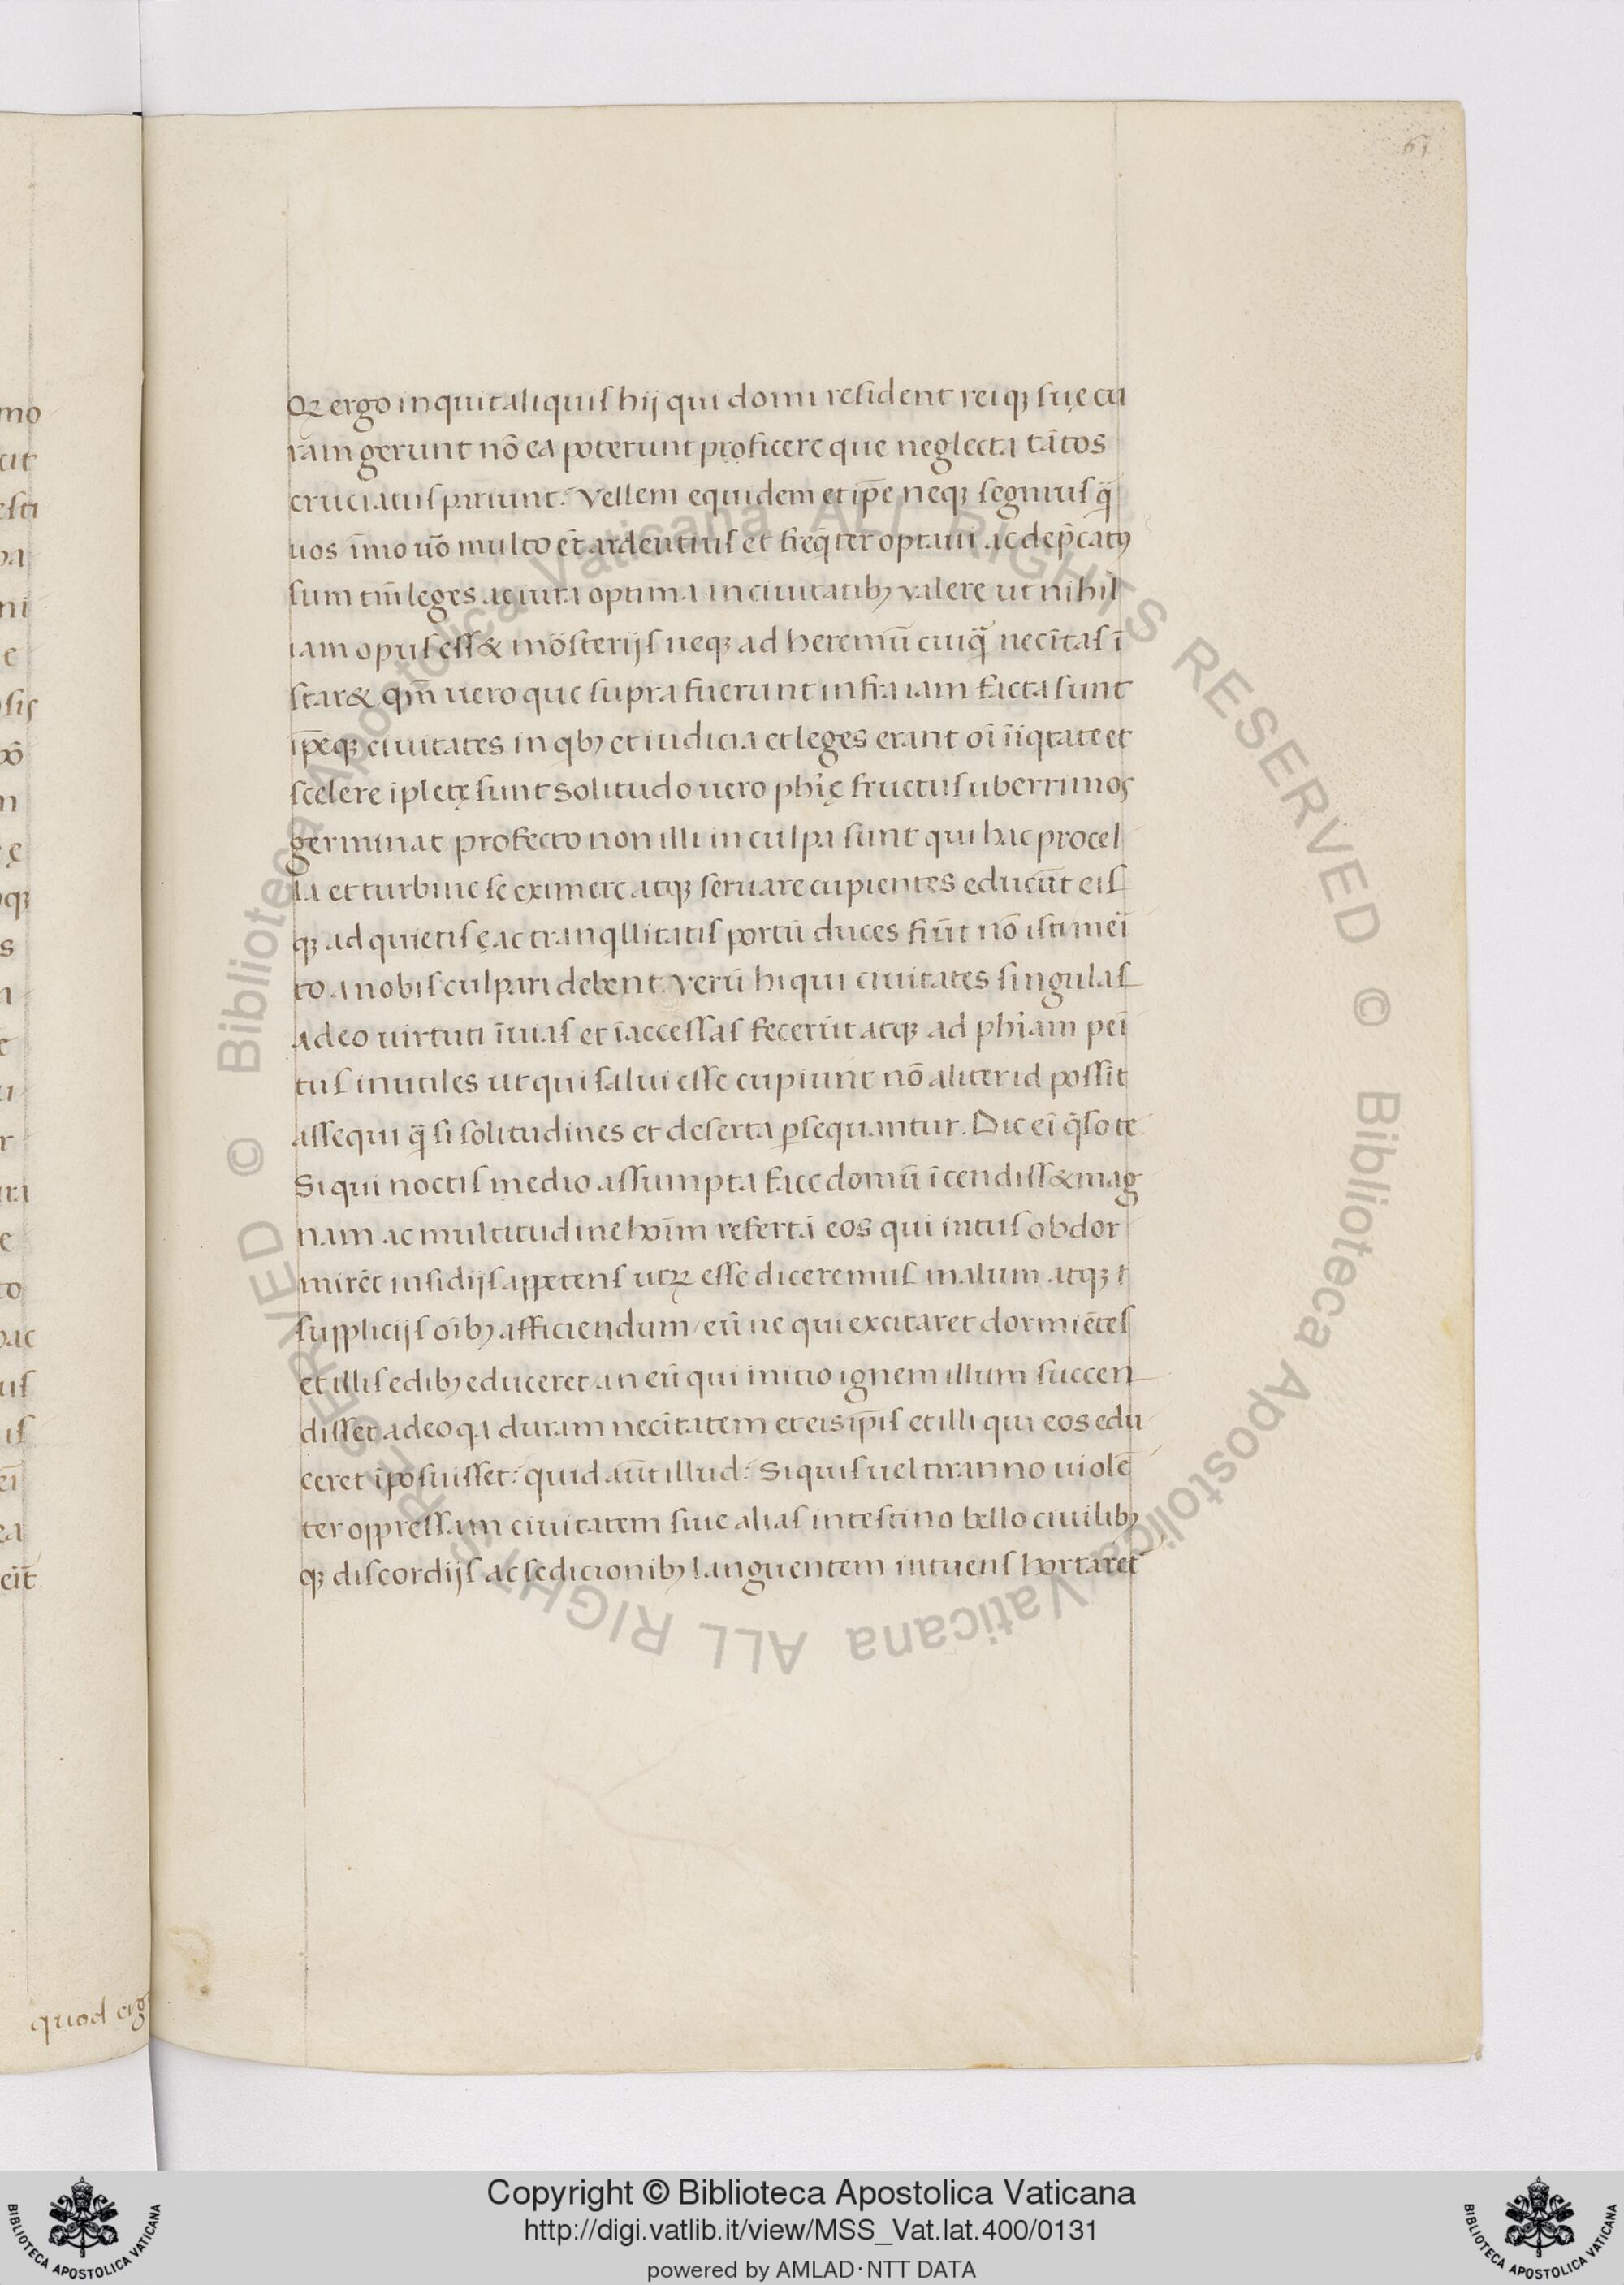 61
Qꝝ ergo inquit aliquis hij qui domi resident reiqꝫ suę cu
ram gerunt nō ea poterunt proficere que neglecta tātos
cruciatus pariunt. Vellem equidem et ip̄e neqꝫ segnius q̄
uos īmo uō multo et̄ ardentius et freq̄ter optaui ac dep̄catꝰ
sum tm̄ leges ac iura optima in ciuitatibꝫ valere ut nihil
iam opus ess& mōsterijs neqꝫ ad heremū cuiq̄ necītas ī
star& qm̄ uero que supra fuerunt infra iam facta sunt
ip̄eqꝫ ciuitates in qbꝫ et iudicia et leges erant oī iīqtate et
scelere ipletę sunt solitudo uero phię fructus uberrimos
germinat profecto non illi in culpa sunt qui hac procel
la et turbine se eximere atqꝫ seruare cupientes educūt eis
qꝫ ad quietis ę ac tranqllitatis portū duces fiūt nō isti meī
to a nobis culpari debent. Verū hi qui ciuitates singulas
adeo uirtuti īuias et īaccessas fecerūt atqꝫ ad phiam peī
tus inutiles ut qui salui esse cupiunt nō aliter id possīt
assequi q̄ si solitudines et deserta ꝑsequantur. Dic eī q̄so te
Si qui noctis medio assumpta face domū īcendiss& mag
nam ac multitudine hoīm refertā eos qui intus obdor
mirēt insidijs appetens utꝝ esse diceremus malum atqꝫ ī
supplicijs oībꝫ afficiendum / eū ne qui excitaret dormiētes
et illis edibꝫ educeret an eū qui initio ignem illum succen
disset adeo qa duram necītatem et eis ip̄is et illi qui eos edu
ceret īposuisset: quid aūt illud: Si quis uel tiranno uiolē
ter oppressam ciuitatem siue alias intestino bello ciuilibꝫ
qꝫ discordijs ac sedicionibꝫ languentem intuens hortaret
quod erg
Copyright © Biblioteca Apostolica Vaticana
http://digi.vatlib.it/view/MSS_Vat.lat.400/0131
powered by AMLAD·NTT DATA
BIBLIOTECA APOSTOLICA VATICANA
BIBLIOTECA APOSTOLICA VATICANA
© Biblioteca Apostolica Vaticana ALL RIGHTS RESERVED © Biblioteca Apostolica Vaticana ALL RIGHTS RESERVED